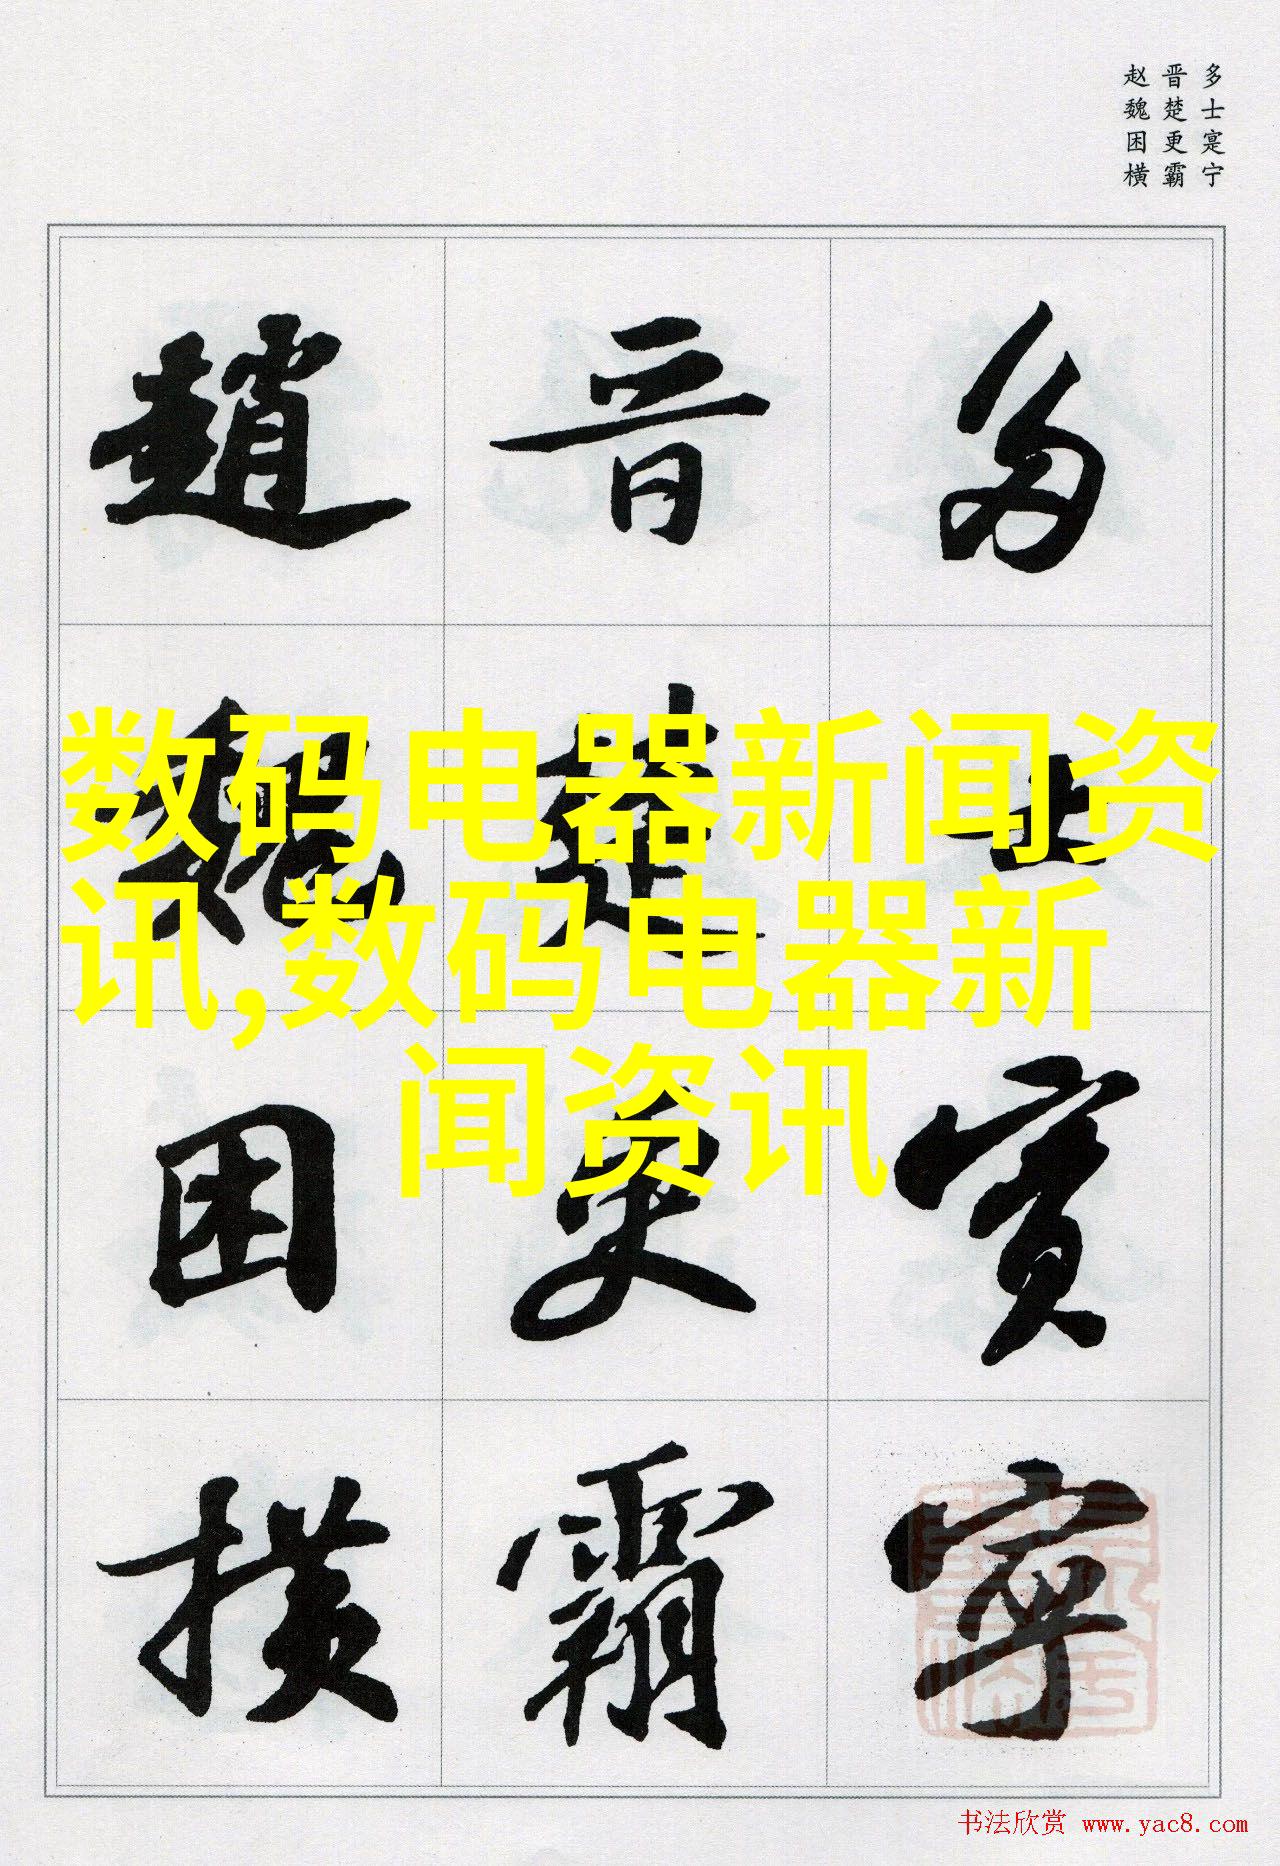 多士寔宁
晋楚更霸
赵魏困横
多士寔寧
晋楚更霸
趙魏困横
数码电器新闻资
讯,数码电器新
闻资讯
书法欣赏 www.yac8.com